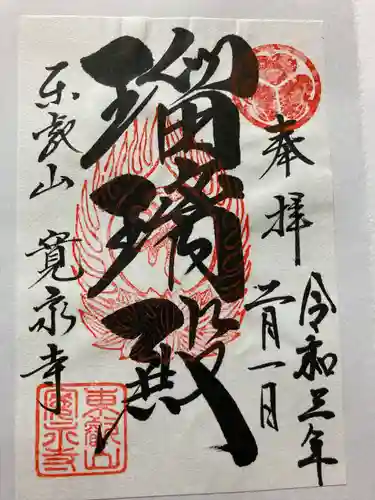 奉拝
令和三年
二月一日
瑠璃殿
東叡山
寛永寺
東叡山
寛永寺